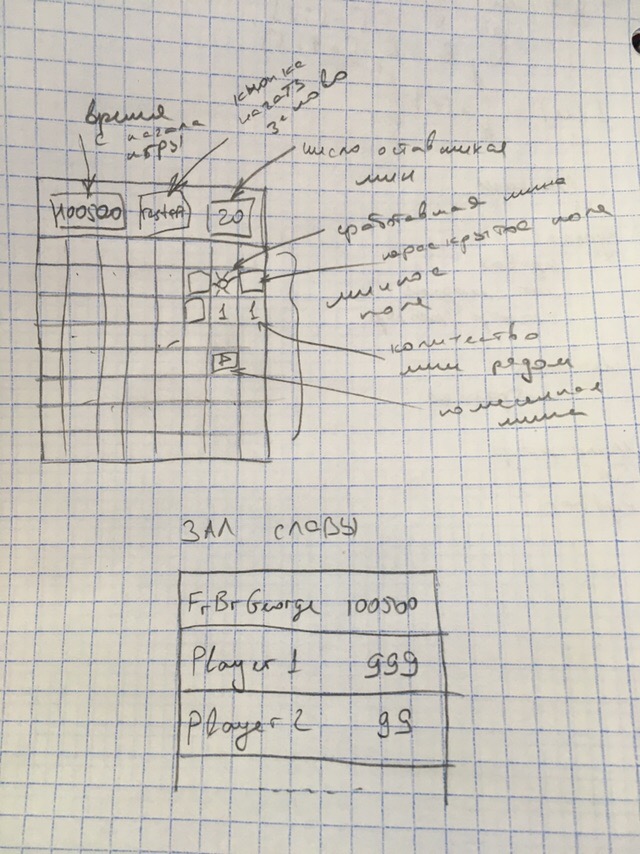 время
с начала
игры
кнопка
начать
заново
число оставшихся
мин
100500
restart
20
сработавшая мина
нераскрытое поле
минное
поле
1 1
количество
мин рядом
помеченная
мина
ЗАЛ СЛАВЫ
FrBrGeorge 100500
Player 1 999
Player 2 99